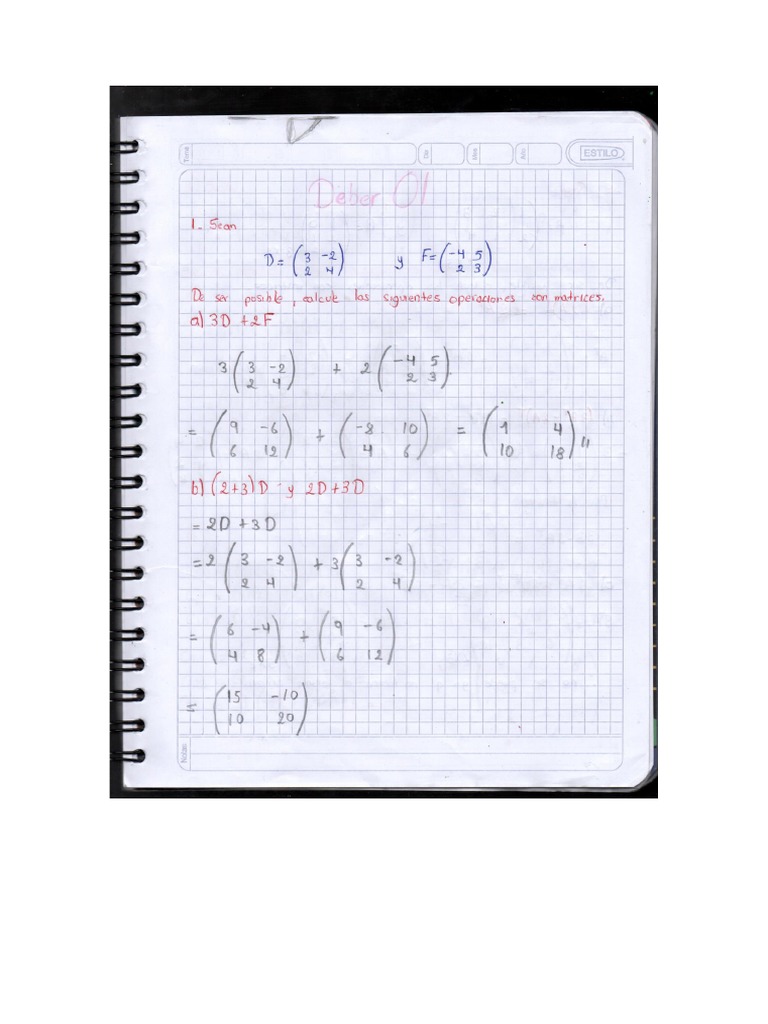 Tema
Día
Mes
Año
ESTILO
Deber 01
1- Sean
D = (3 -2   y   F = (-4 5
2 4)   2 3)
De ser posible, calcule las siguientes operaciones con matrices.
a) 3D + 2F
3 (3 -2   + 2 (-4 5
2 4)   2 3)
= (9 -6   + (-8 10   = (1 4
6 12)   4 6)   10 18) //
b) (2+3)D y 2D+3D
= 2D + 3D
= 2 (3 -2   + 3 (3 -2
2 4)   2 4)
= (6 -4   + (9 -6
4 8)   6 12)
= (15 -10
10 20)
Notas